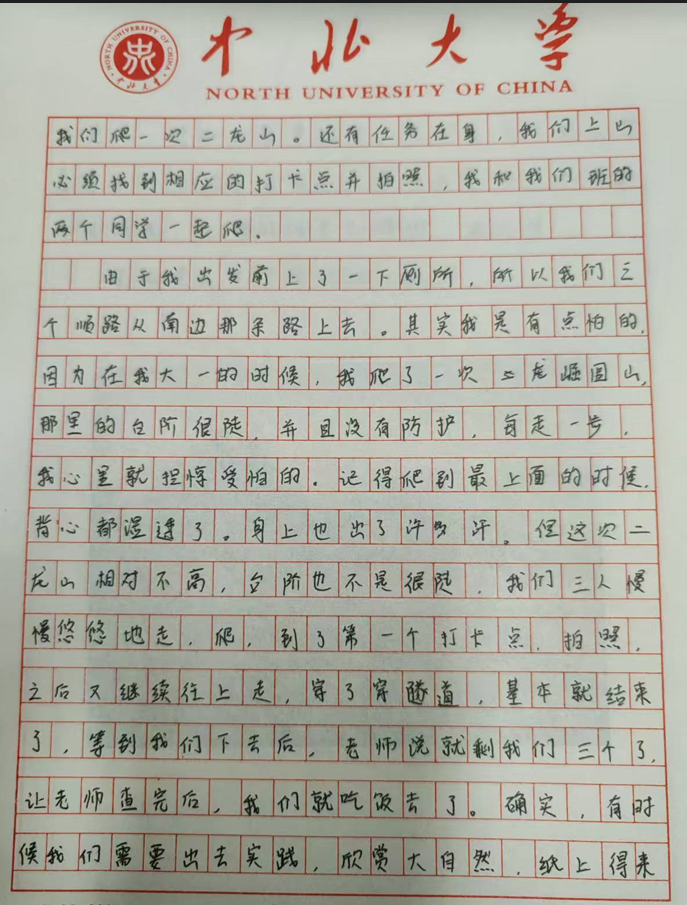 中北大学
NORTH UNIVERSITY OF CHINA
我们爬一次二龙山。还有任务在身，我们上山
必须找到相应的打卡点并拍照，我和我们班的
两个同学一起爬、
由于我出发前上了一下厕所，所以我们三
个顺路从南边那条路上去。其实我是有点怕的，
因为在我大一的时候，我爬了一次二龙崛围山，
那里的台阶很陡，并且没有防护，每走一步，
我心里就担惊受怕的。记得爬到最上面的时候，
背心都湿透了。身上也出了许多汗。但这次二
龙山相对不高，台阶也不是很陡，我们三人慢
慢悠悠地走，爬，到了第一个打卡点，拍照，
之后又继续往上走，穿了穿隧道，基本就结束
了，等到我们下去后，老师说就剩我们三个了，
让老师查完后，我们就吃饭去了。确实，有时
候我们需要出去实践，欣赏大自然，纸上得来